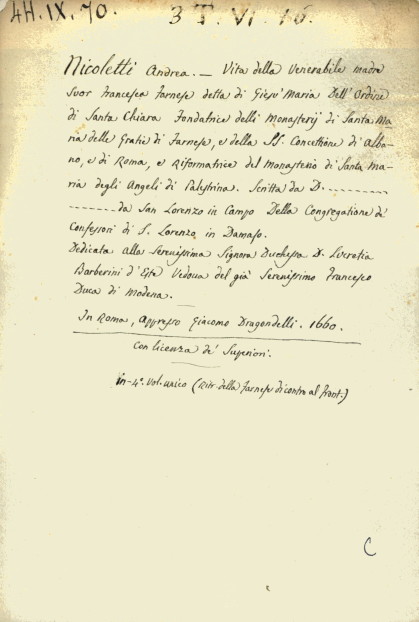 4H.IX.70. 3 T. VI. 16.
Nicoletti Andrea. — Vita della Venerabile madre
Suor Francesca Farnese detta di Giesu' Maria Dell'Ordine
di Santa Chiara Fondatrice delli Monasterij di Santa Ma
ria delle Gratie di Farnese, e della SS. Concettione di Alba-
no, e di Roma, e Riformatrice del Monasterio di Santa Ma-
ria degli Angeli di Palestrina. Scritta da D. ----------
---------- da San Lorenzo in Campo Della Congregatione de'
Confessori di S. Lorenzo in Damaso.
Dedicata alla Serenissima Signora Duchessa D. Lucretia
Barberini d'Este Vedova del già Serenissimo Francesco
Duca di Modena.
In Roma, Appresso Giacomo Dragondelli. 1660.
Con licenza de' Superiori.
In-4°. Vol. unico (Ritr. della Farnese di contro al front.)
C